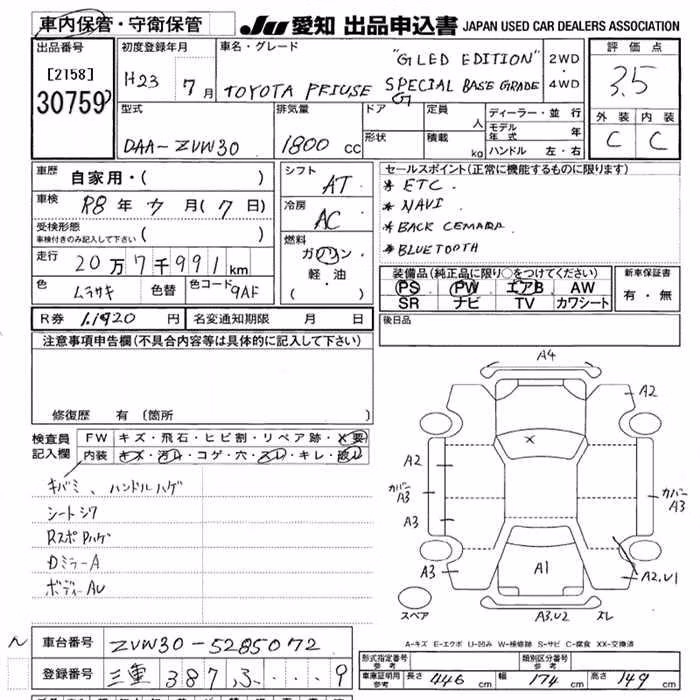 車内保管・守衛保管
JU 愛知 出品申込書 JAPAN USED CAR DEALERS ASSOCIATION
出品番号
[2158]
30759
初度登録年月
H23 7月
車名・グレード
TOYOTA PRIUSE
"G LED EDITION"
SPECIAL BASE GRADE
G
2WD
・
4WD
評価点
3.5
外装 内装
C C
型式
DAA-ZVW30
排気量
1800 cc
ドア
形状
定員 人
積載 kg
ディーラー・並行
モデル年式 年
ハンドル 左・右
車歴 自家用・( )
車検 R8年 7月(7日)
受検形態 ( )
車検付きのみ記入して下さい
走行 20万7千991km
色 ムラサキ 色替 色コード 9AF
シフト
AT
冷房
AC
燃料
ガソリン
・
軽油
( )
セールスポイント(正常に機能するものに限ります)
* ETC.
* NAVI
* BACK CEMARA
* BLUETOOTH
装備品(純正品に限り○をつけてください)
PS PW エアB AW
SR ナビ TV カワシート
新車保証書
有・無
R券 11920円 名変通知期限 月 日
後日品
注意事項申告欄(不具合内容等は具体的に記入して下さい)
修復歴 有(箇所 )
検査員記入欄
FW キズ・飛石・ヒビ割・リペア跡・X要
内装 キズ・汚れ・コゲ・穴・スレ・キレ・破れ
キバミ、ハンドルハゲ
シートシワ
RスポPハゲ
Dミラー A
ボディー AU
A4
A2
A2
カバー
A3
A3
カバー
A3
A3
A1
A2.U1
スペア
A3.U2
スレ
A-キズ E-エクボ U-凹み W-補修跡 S-サビ C-腐食 XX-交換済
車台番号 ZVW30-5285072
登録番号 三重 387 ふ ・・・9
形式指定番号 参考
類別区分番号 参考
車庫証明用 参考 長さ 446 cm 幅 174 cm 高さ 149 cm